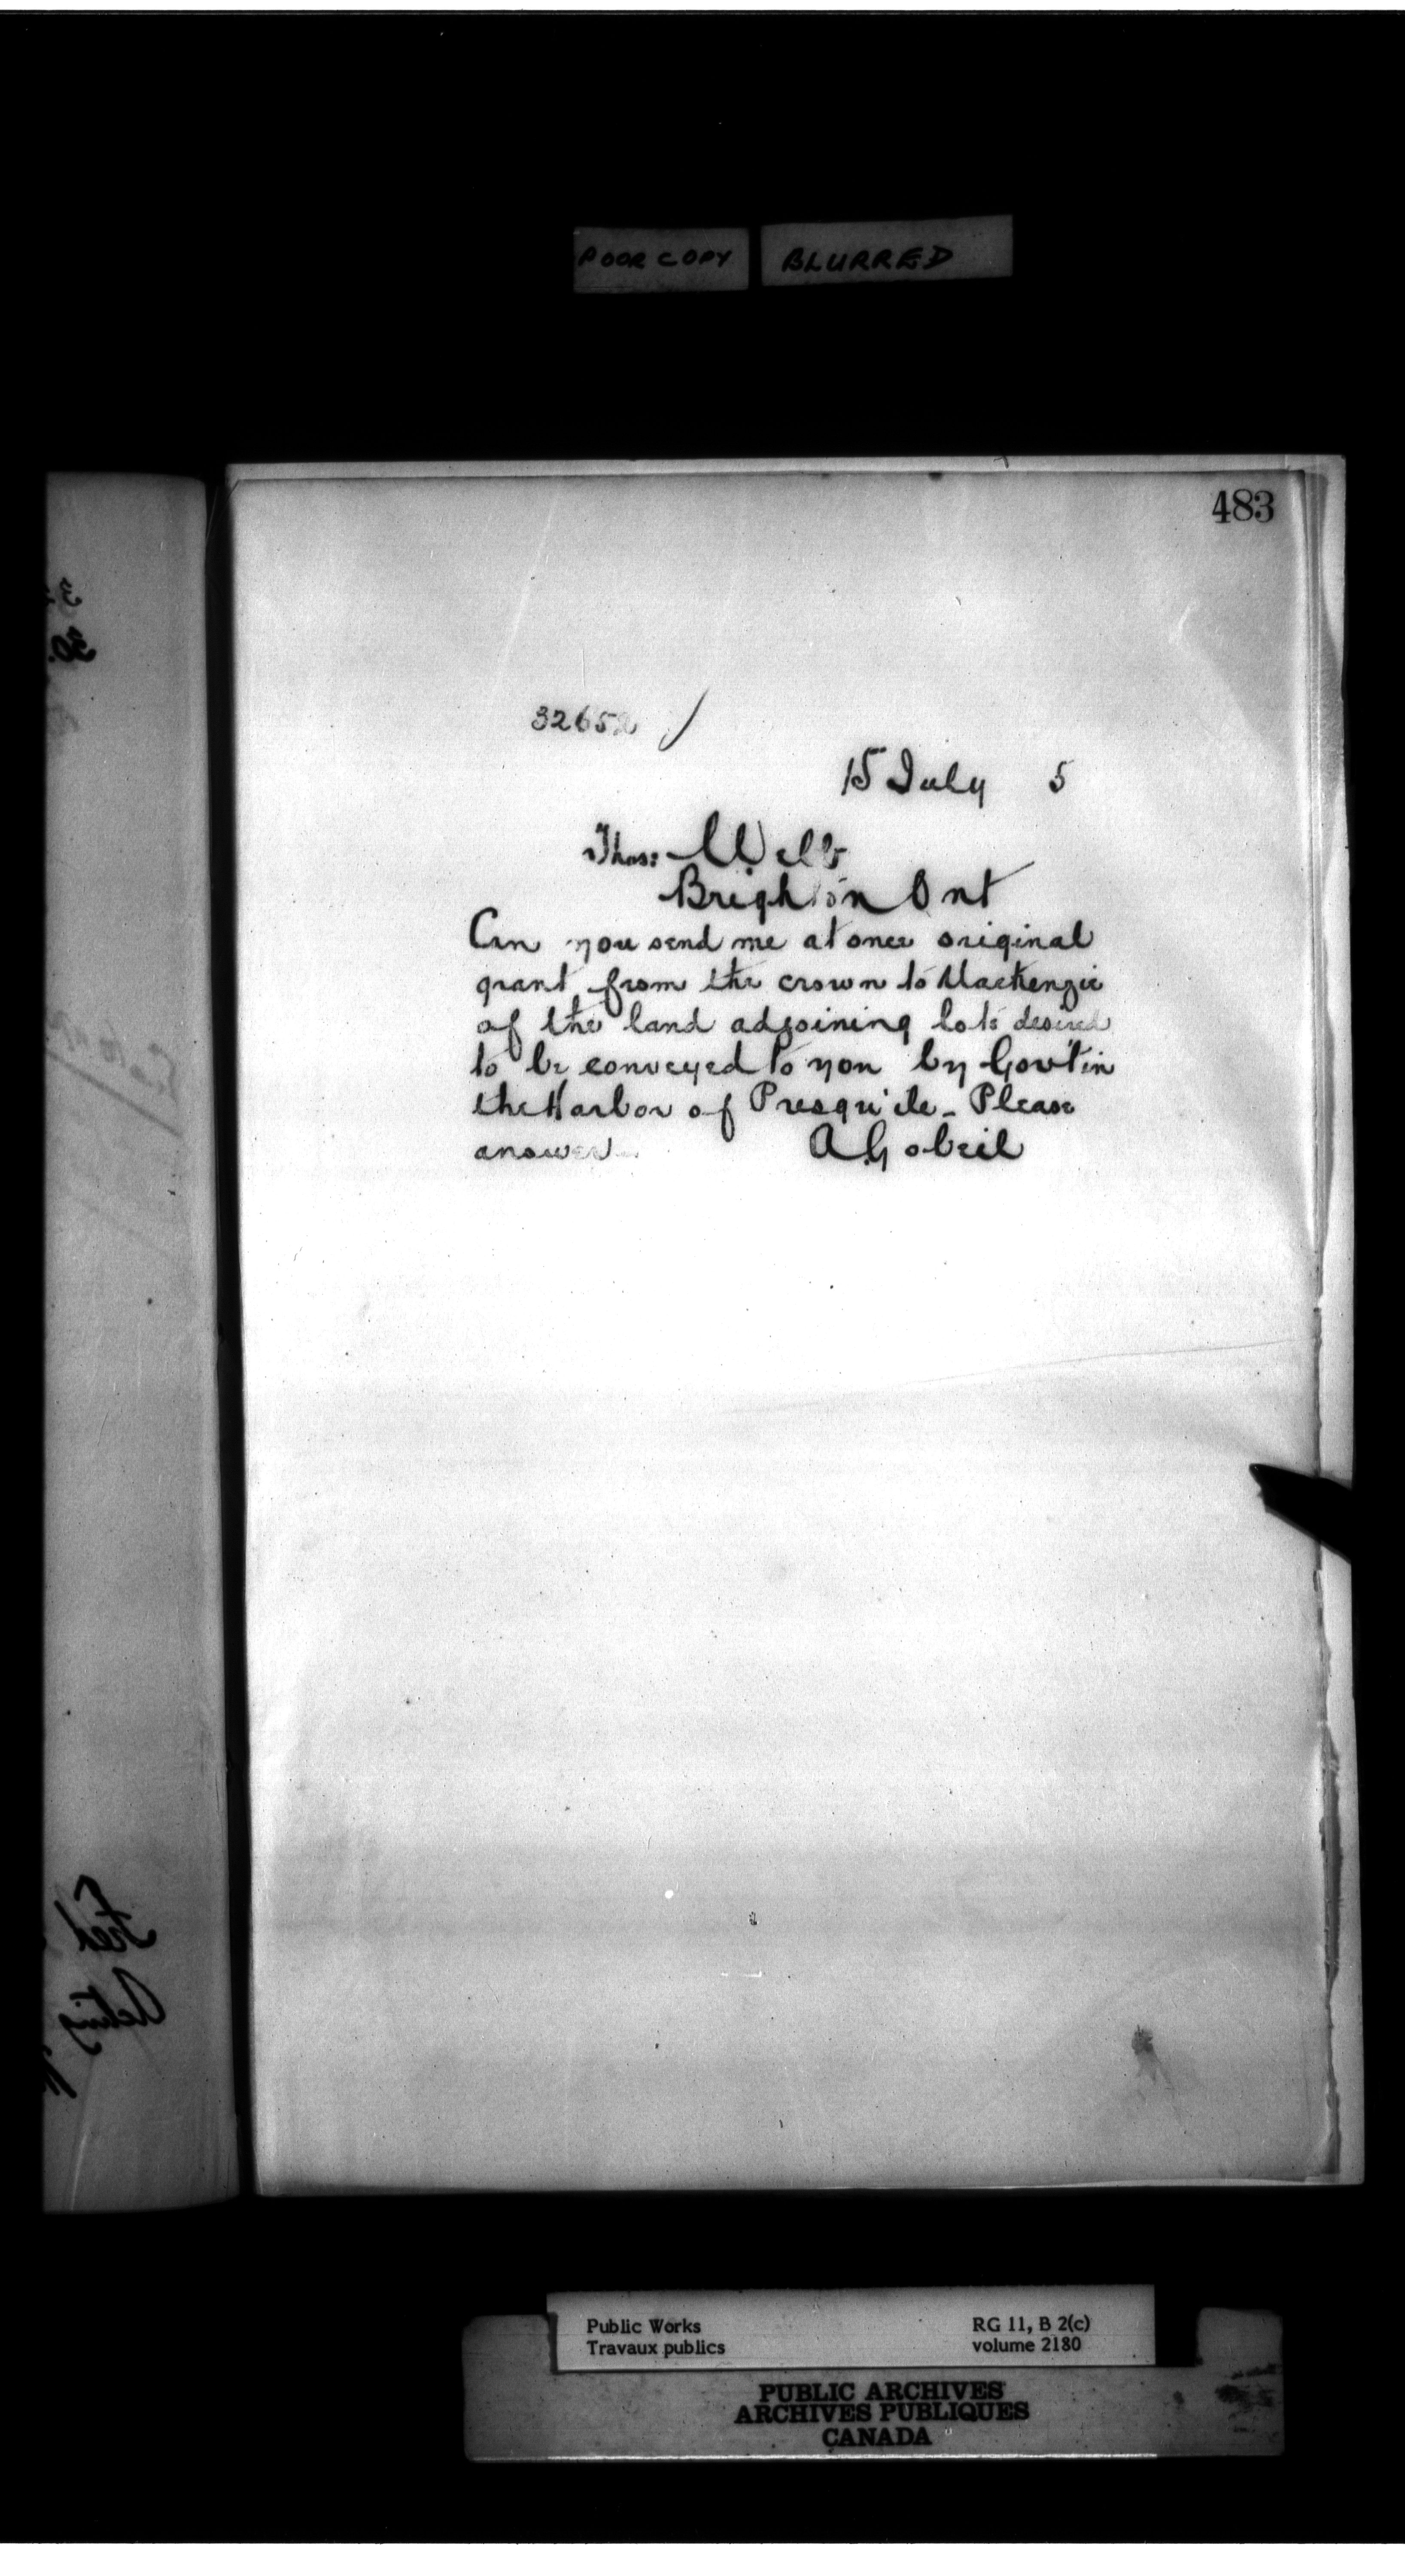 POOR COPY BLURRED
483
32652
15 July 5
Thos: Webb
Brighton Ont
Can you send me at once original
grant from the crown to Mackenzie
of the land adjoining lots desired
to be conveyed to you by Govt in
the Harbor of Presqu'ile - Please
answer
A Gobeil
Fred
Acting
Public Works RG 11, B 2(c)
Travaux publics volume 2180
PUBLIC ARCHIVES
ARCHIVES PUBLIQUES
CANADA